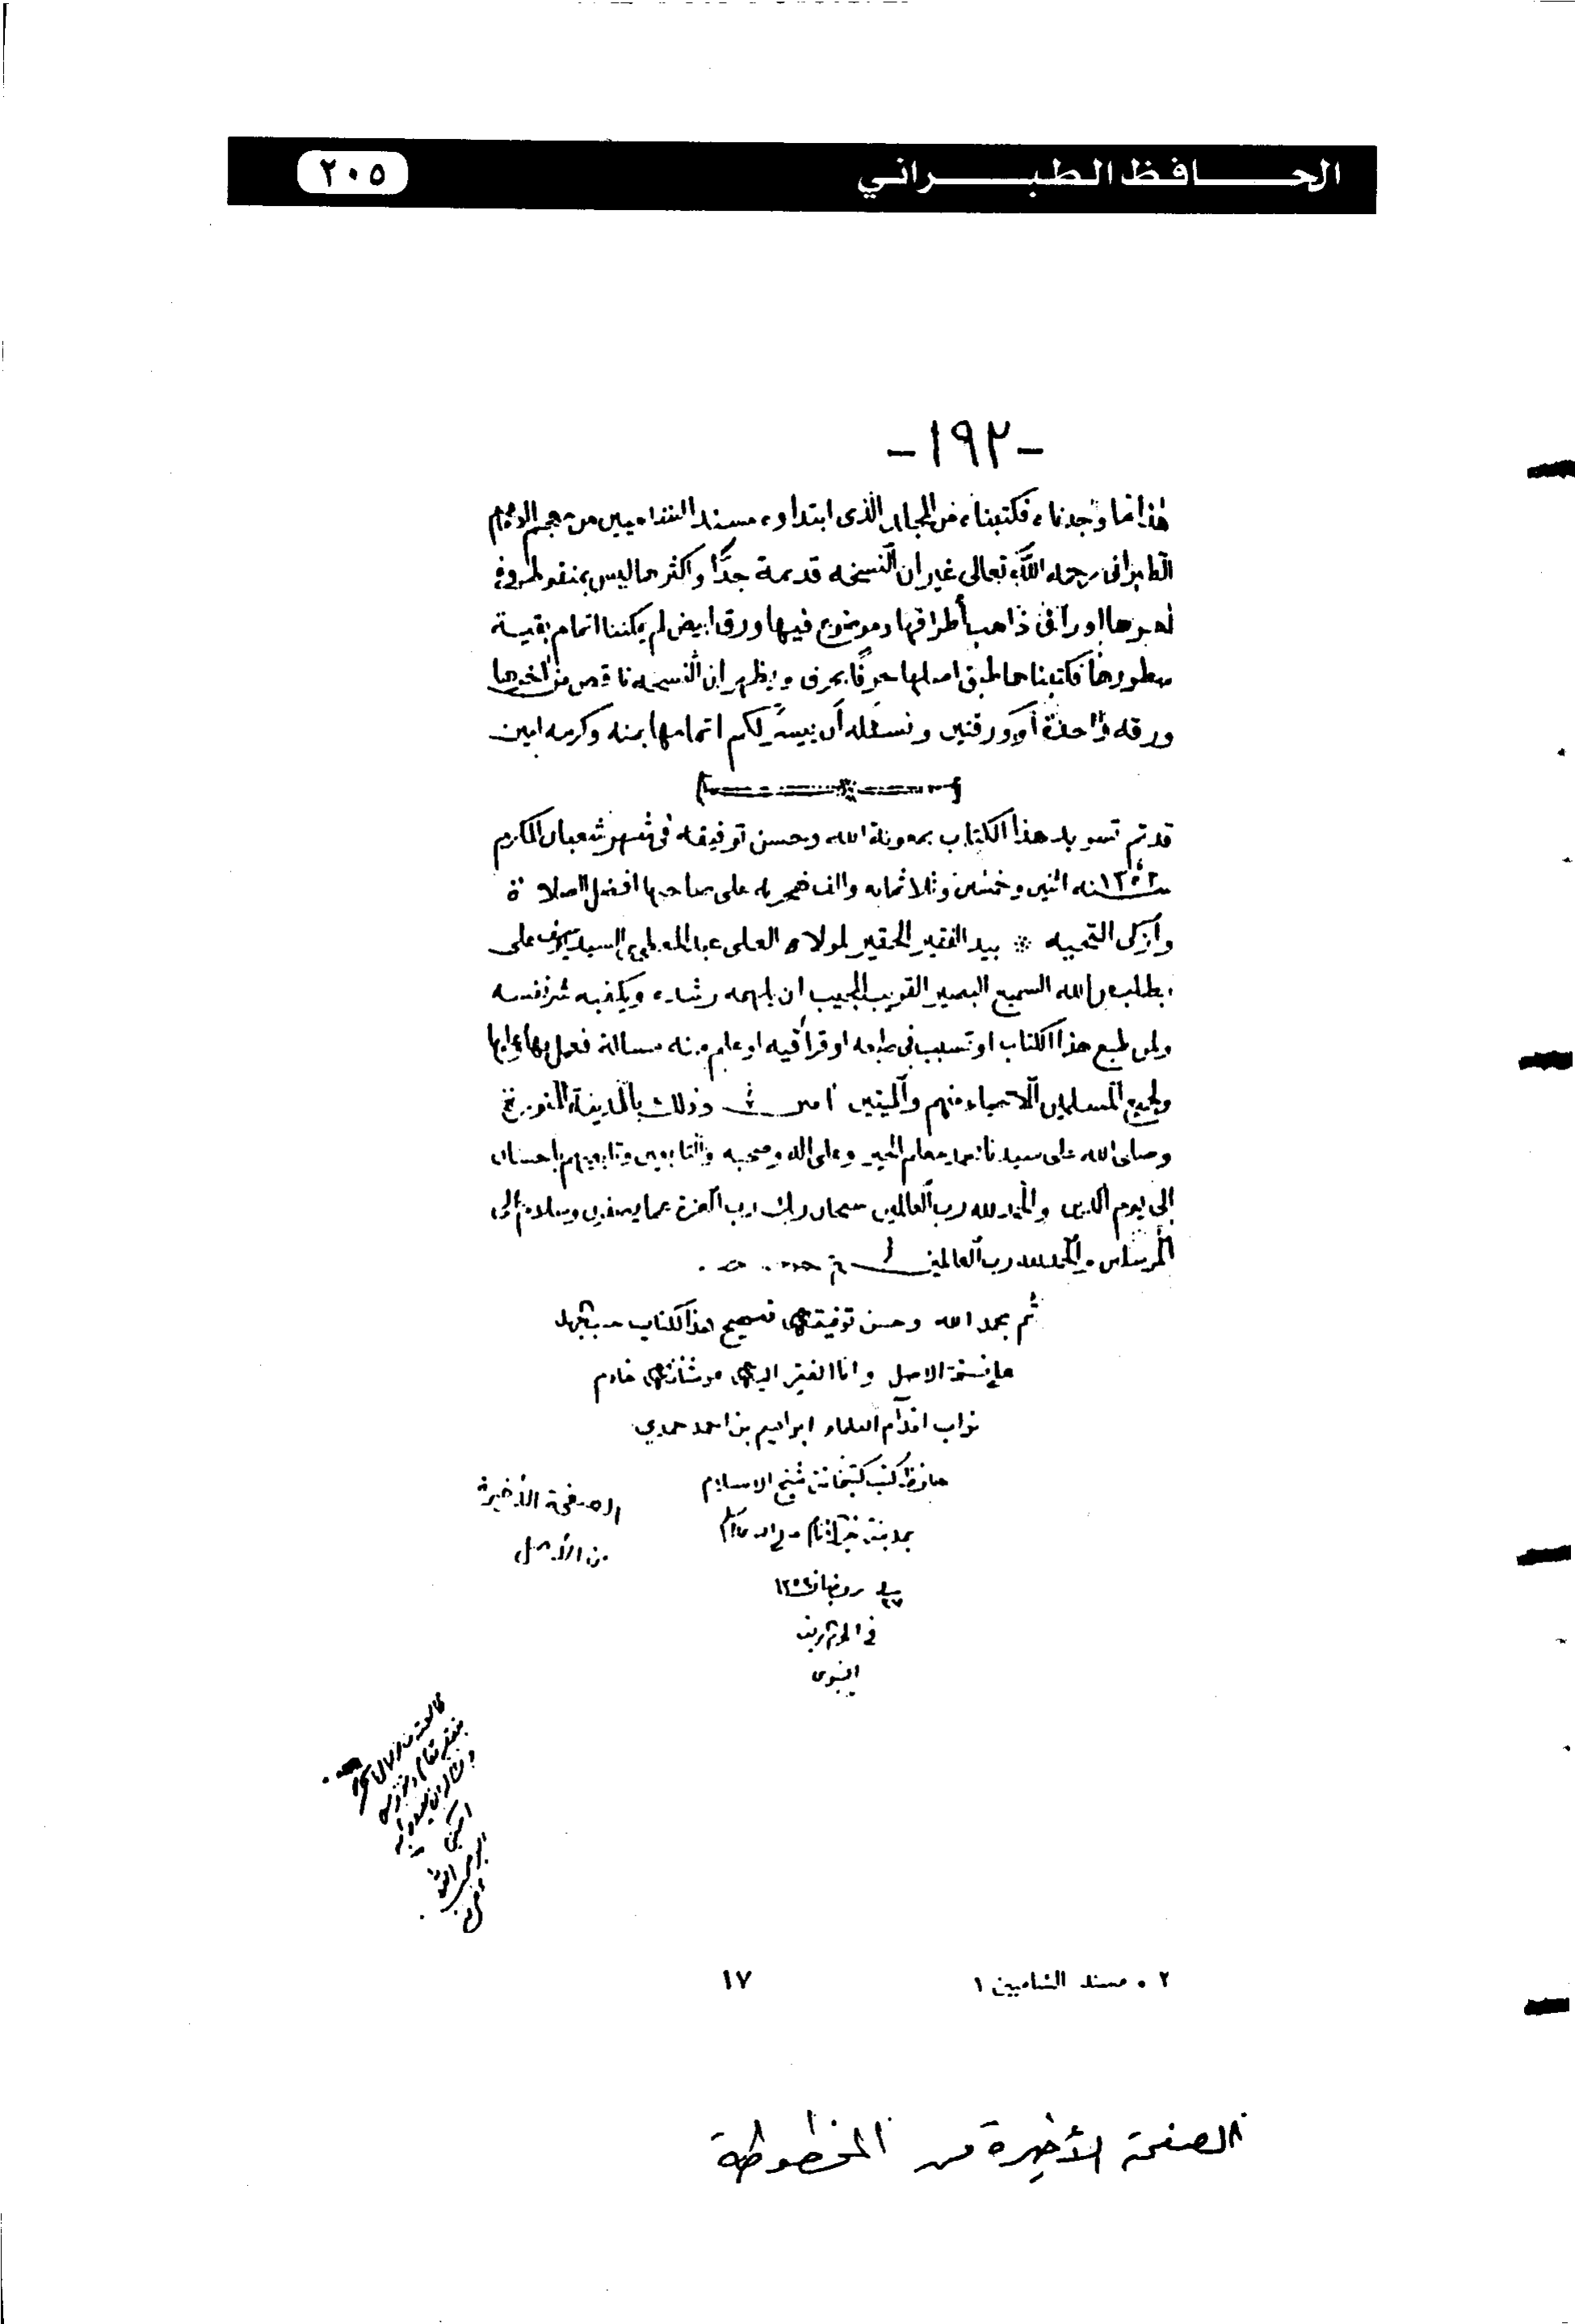 الحافظ الطبراني
٢٠٥
-١٩٢-
هذا ما وجدناه فكتبناه من المجلد الذى ابتداؤه مسند الشاميين من معجم الامام
الطبرانى رحمه الله تعالى غير ان النسخه قديمة جدًّا واكثرها ليس بمنقوط وفى
اوراق ذاهب أطرافها وموضوع فيها ورق ابيض لم يمكننا اتمام بقية
سطورها فكتبناها طبق اصلها حرفًا بحرف ويظهر ان النسخه ناقص من آخرها
ورقه واحدة أو ورقتين ونسئله أن ييسر لكم اتمامها بمنه وكرمه امين
قد تم تسويد هذا الكتاب بمعونة الله وحسن توفيقه فى شهر شعبان المكرم
سنه ١٣٥٢ اثنين وخمسين وثلاثمايه والف هجريه على صاحبها افضل الصلاة
وأزكى التحيه بيد الفقير الحقير لمولاه العلى عبد المعطى السيد يوسف على
يطلب من الله السميع البصير القريب المجيب ان يلهمه رشده ويكفيه شر نفسه
ولمن طبع هذا الكتاب او تسبب فى طبعه او قرأ فيه او علم منه مسالة فعمل بها
ولجميع المسلمين الاحياء منهم والميتين امين وذلك بالمدينة المنورة
وصلى الله على سيدنا محمد معلم الخير وعلى اله وصحبه والتابعين وتابعيهم باحسان
إلى يوم الدين والحمد لله رب العالمين سبحان ربك رب العزة عما يصفون وسلام على
المرسلين والحمد لله رب العالمين
تم بحمد الله وحسن توفيقه تصحيح هذا الكتاب حسب الجهد
على نسخة الاصل وانا الفقير اليه خادم
تراب اقدام العلماء ابراهيم بن احمد حمدي
حافظ كتب كتبخانة شيخ الاسلام
بمدينة خير الانام
٢٧ رمضان ١٣٥٢
في الحرم الشريف
النبوى
الصفحة الأخيرة
من الأصل
٢ ٠ مسند الشاميين ١
١٧
الصفحة الأخيرة من المخطوطة